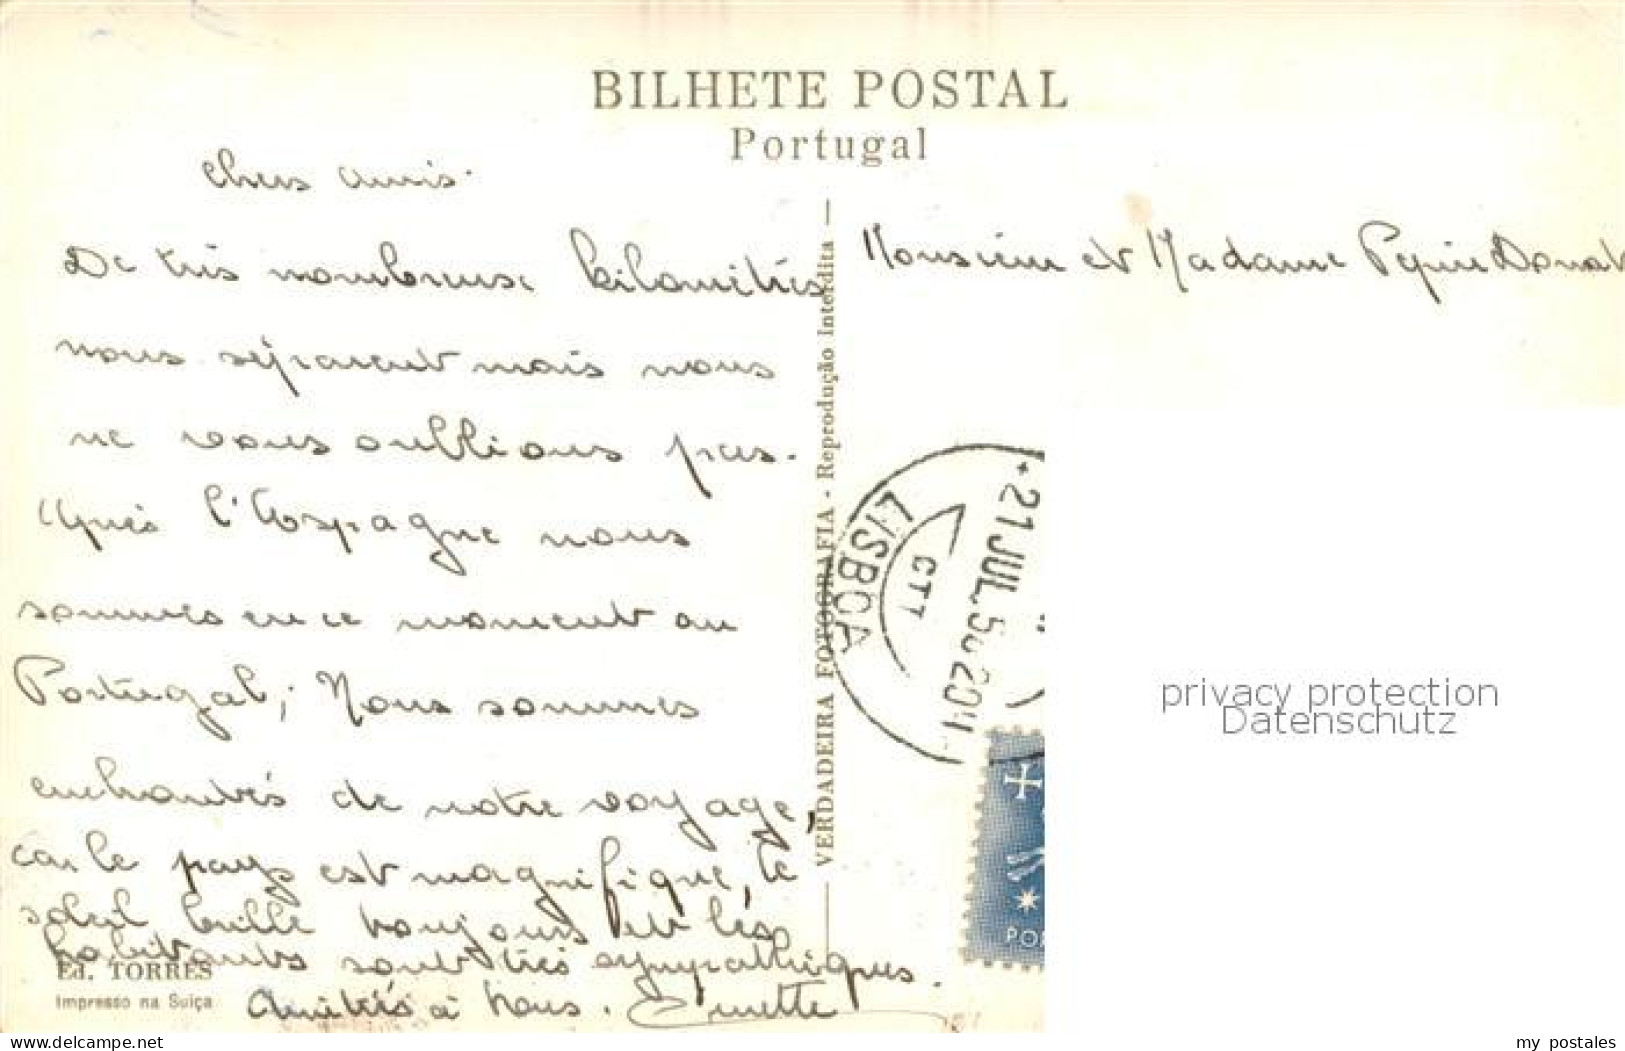 BILHETE POSTAL
Portugal
Chers amis.
De très nombreuse kilomètres
nous séparent mais nous
ne vous oublions pas.
Après l'Espagne nous
sommes en ce moment au
Portugal; Nous sommes
enchantés de notre voyage,
car le pays est magnifique, le
soleil brille toujours et les
habitants sont très sympathiques.
Amitiés à tous.
Ed. TORRES
Impresso na Suiça
VERDADEIRA FOTOGRAFIA - Reprodução interdita
Monsieur et Madame Donat
LISBOA
CTT
21 JUL. 5
POR
privacy protection
Datenschutz
delcampe.net
my postales